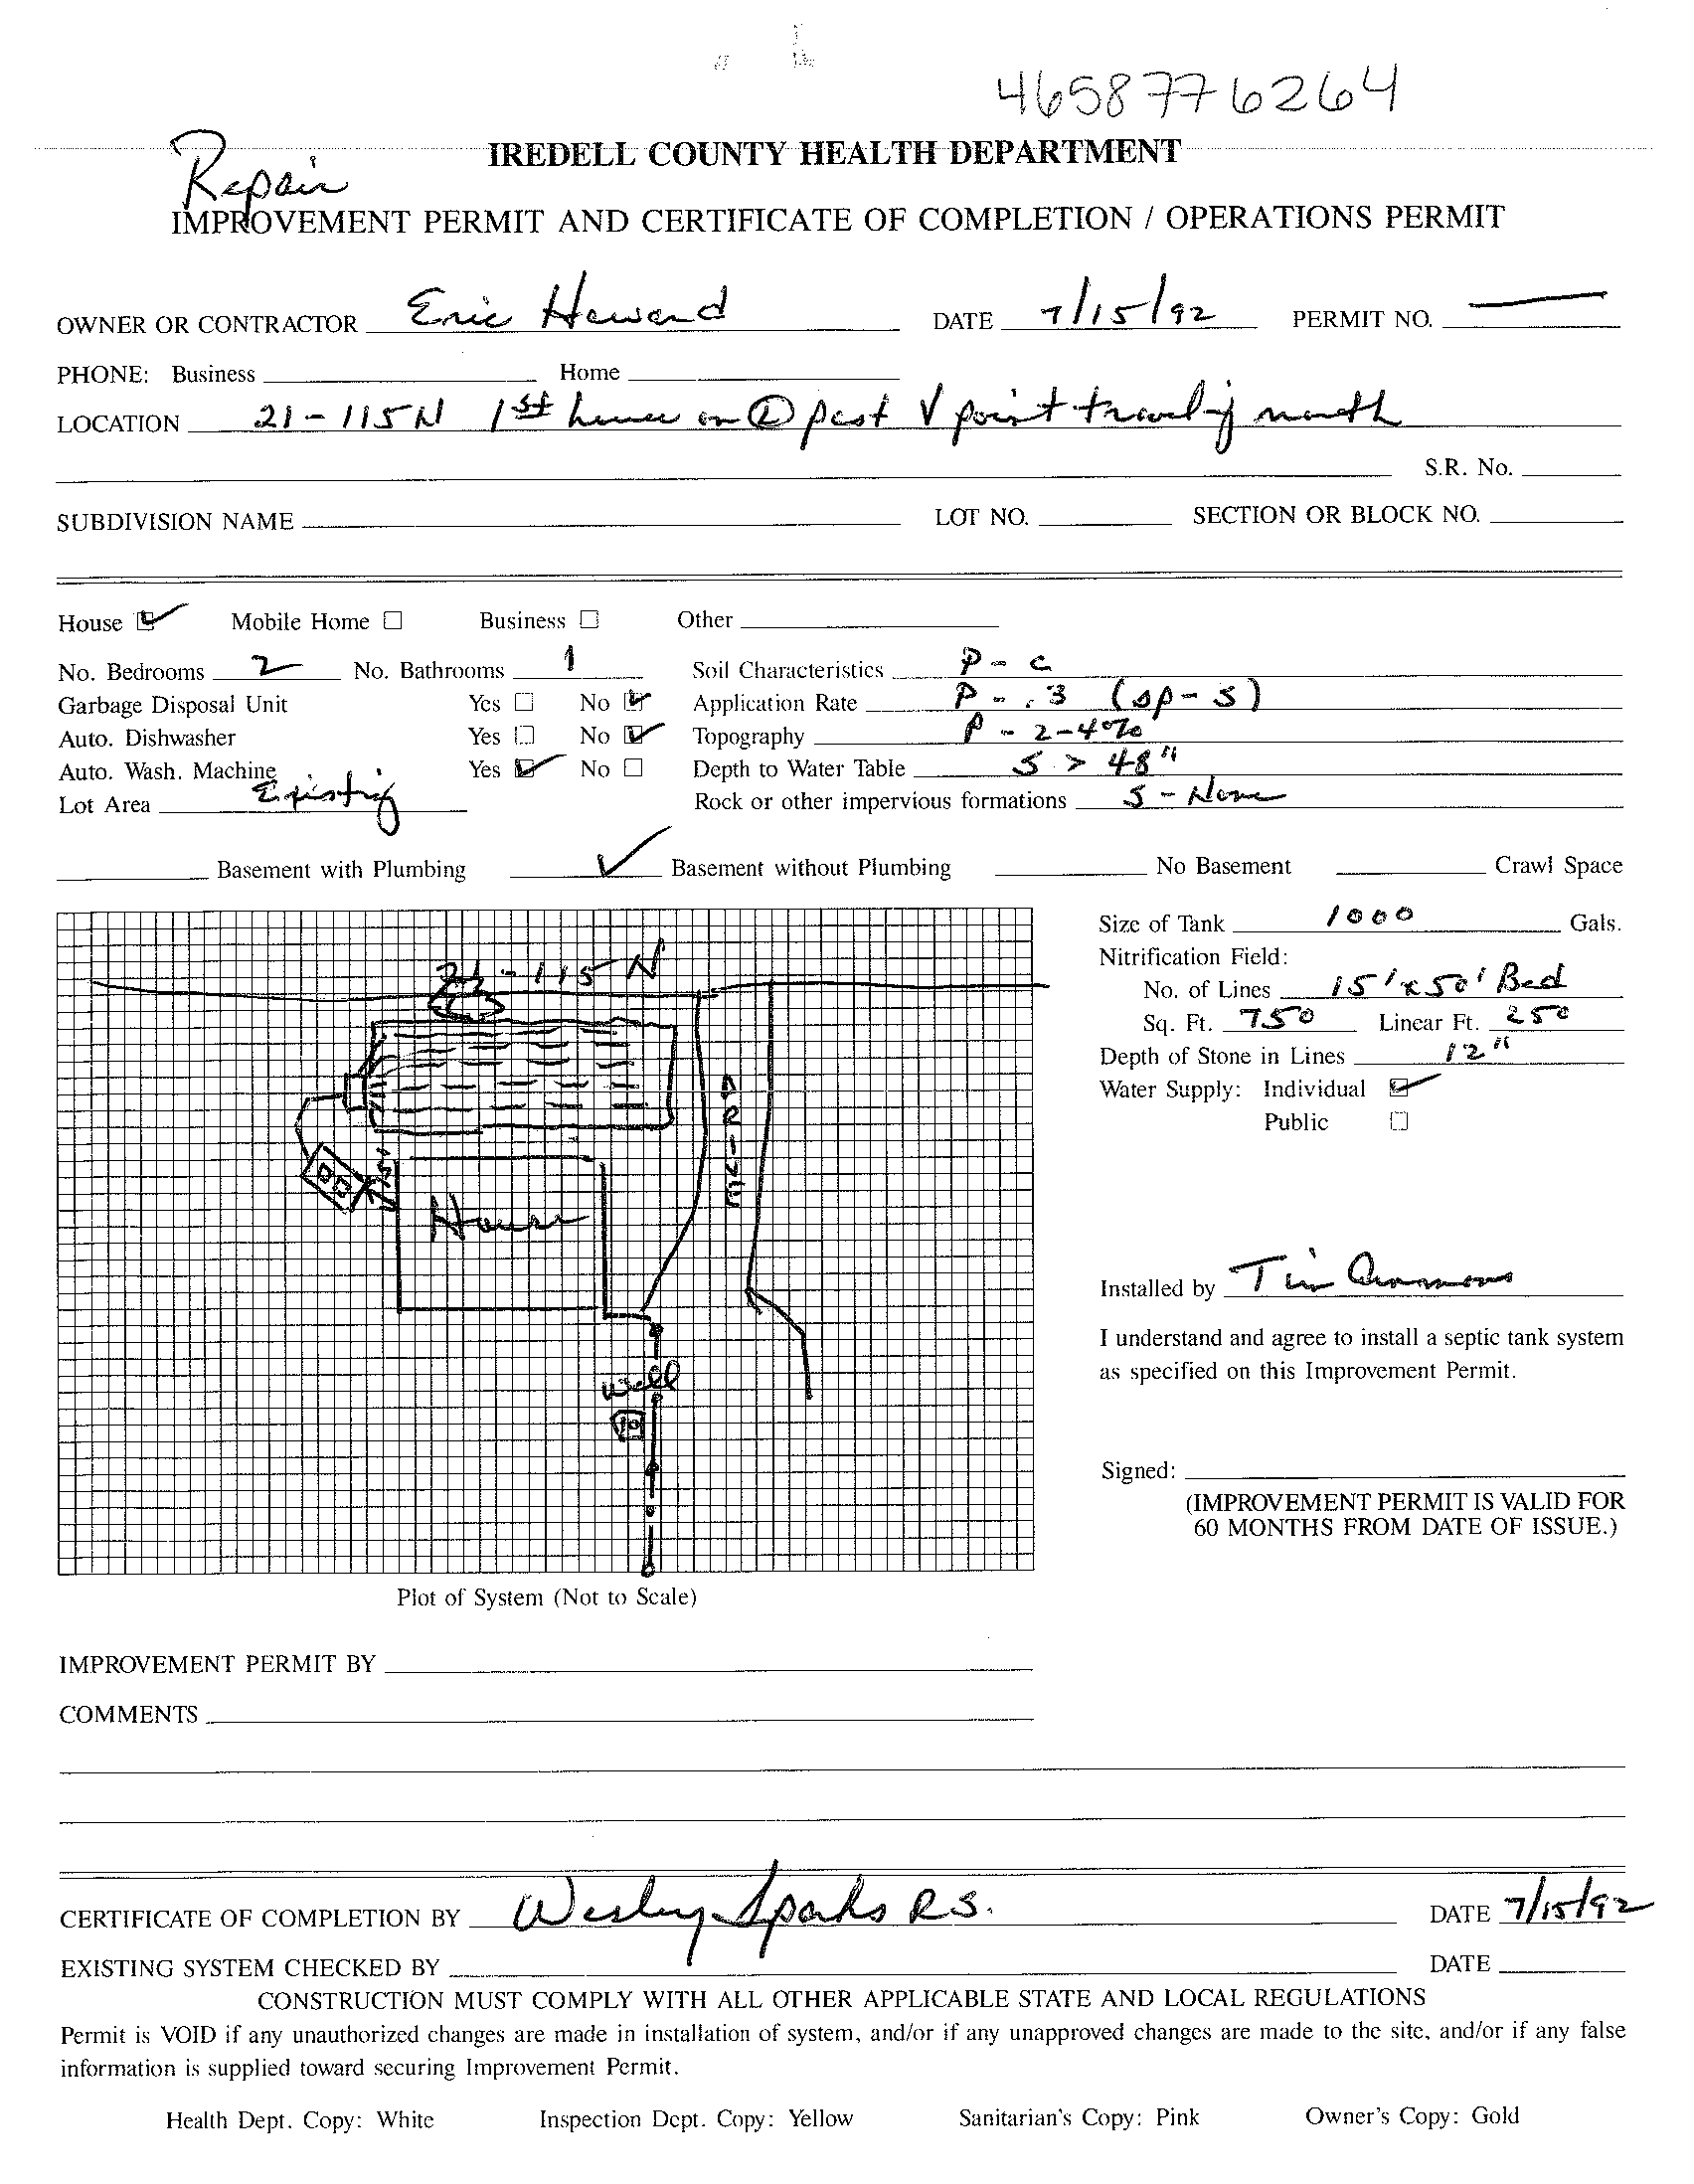 4658776264
Repair
IREDELL COUNTY HEALTH DEPARTMENT
IMPROVEMENT PERMIT AND CERTIFICATE OF COMPLETION / OPERATIONS PERMIT
OWNER OR CONTRACTOR Eric Howard DATE 7/15/92 PERMIT NO. —
PHONE: Business Home
LOCATION 21-115N 1st house on Ⓛ past V point traveling north
S.R. No.
SUBDIVISION NAME LOT NO. SECTION OR BLOCK NO.
House ☑ Mobile Home ☐ Business ☐ Other
No. Bedrooms 2 No. Bathrooms 1 Soil Characteristics P - c
Garbage Disposal Unit Yes ☐ No ☑ Application Rate P - .3 (sp-s)
Auto. Dishwasher Yes ☐ No ☑ Topography P - 2-4%
Auto. Wash. Machine Yes ☑ No ☐ Depth to Water Table S > 48"
Lot Area Existing Rock or other impervious formations S - None
Basement with Plumbing ✓ Basement without Plumbing No Basement Crawl Space
Size of Tank 1000 Gals.
Nitrification Field:
No. of Lines 15' x 50' Bed
Sq. Ft. 750 Linear Ft. 250
Depth of Stone in Lines 12"
Water Supply: Individual ☑
Public ☐
21-115 N
DRIVE
House
Well
Installed by Tim Ammons
I understand and agree to install a septic tank system
as specified on this Improvement Permit.
Signed:
(IMPROVEMENT PERMIT IS VALID FOR
60 MONTHS FROM DATE OF ISSUE.)
Plot of System (Not to Scale)
IMPROVEMENT PERMIT BY
COMMENTS
CERTIFICATE OF COMPLETION BY Wesley Sparks R.S. DATE 7/15/92
EXISTING SYSTEM CHECKED BY DATE
CONSTRUCTION MUST COMPLY WITH ALL OTHER APPLICABLE STATE AND LOCAL REGULATIONS
Permit is VOID if any unauthorized changes are made in installation of system, and/or if any unapproved changes are made to the site, and/or if any false
information is supplied toward securing Improvement Permit.
Health Dept. Copy: White Inspection Dept. Copy: Yellow Sanitarian's Copy: Pink Owner's Copy: Gold